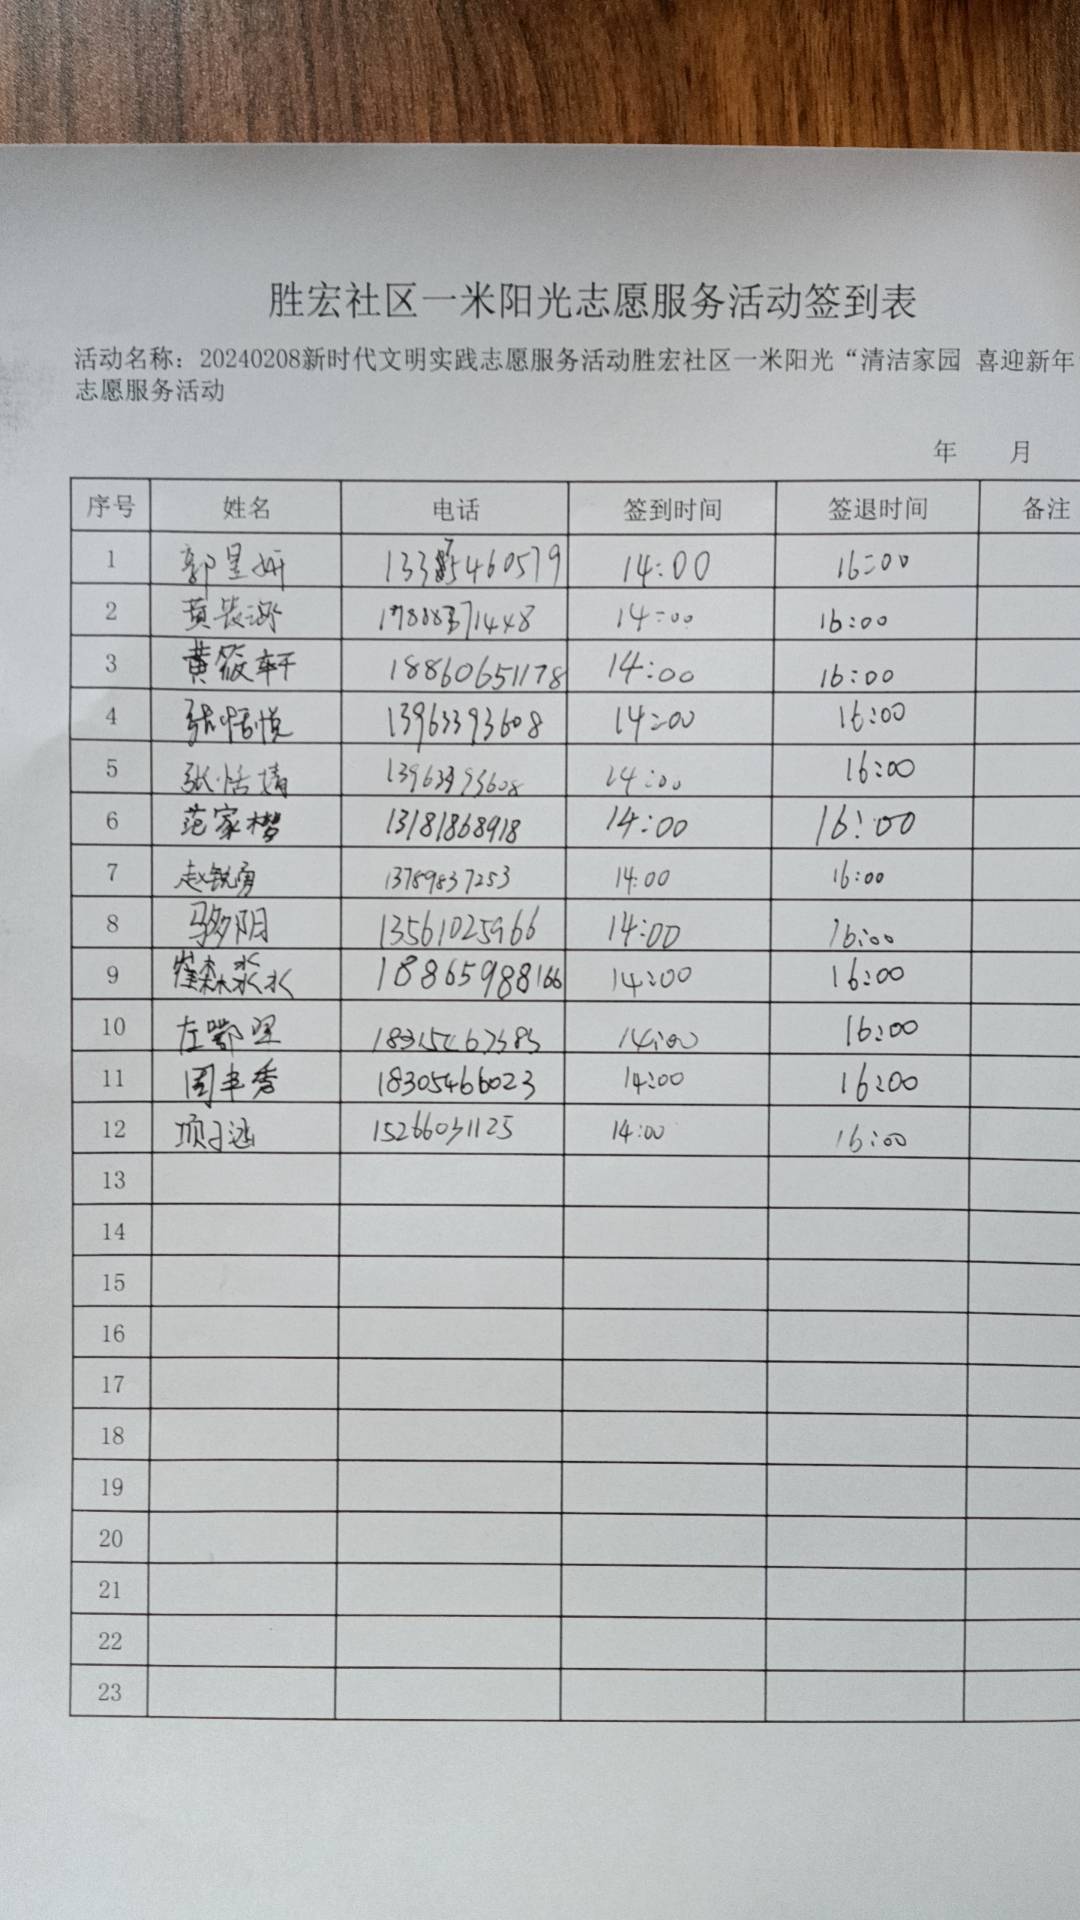 胜宏社区一米阳光志愿服务活动签到表
活动名称：20240208新时代文明实践志愿服务活动胜宏社区一米阳光“清洁家园 喜迎新年
志愿服务活动
年 月
序号 姓名 电话 签到时间 签退时间 备注
1 郭昱妍 14:00 16:00
2 黄 14:00 16:00
3 黄筱轩 18860651178 14:00 16:00
4 张恬悦 13963393608 14:00 16:00
5 张恬婧 14:00 16:00
6 范家楷 13181868918 14:00 16:00
7 赵锐勇 13789837253 14:00 16:00
8 马多阳 13561025966 14:00 16:00
9 崔森淼 18865988166 14:00 16:00
10 左 14:00 16:00
11 周丰秀 18305466023 14:00 16:00
12 项子涵 15266031125 14:00 16:00
13
14
15
16
17
18
19
20
21
22
23